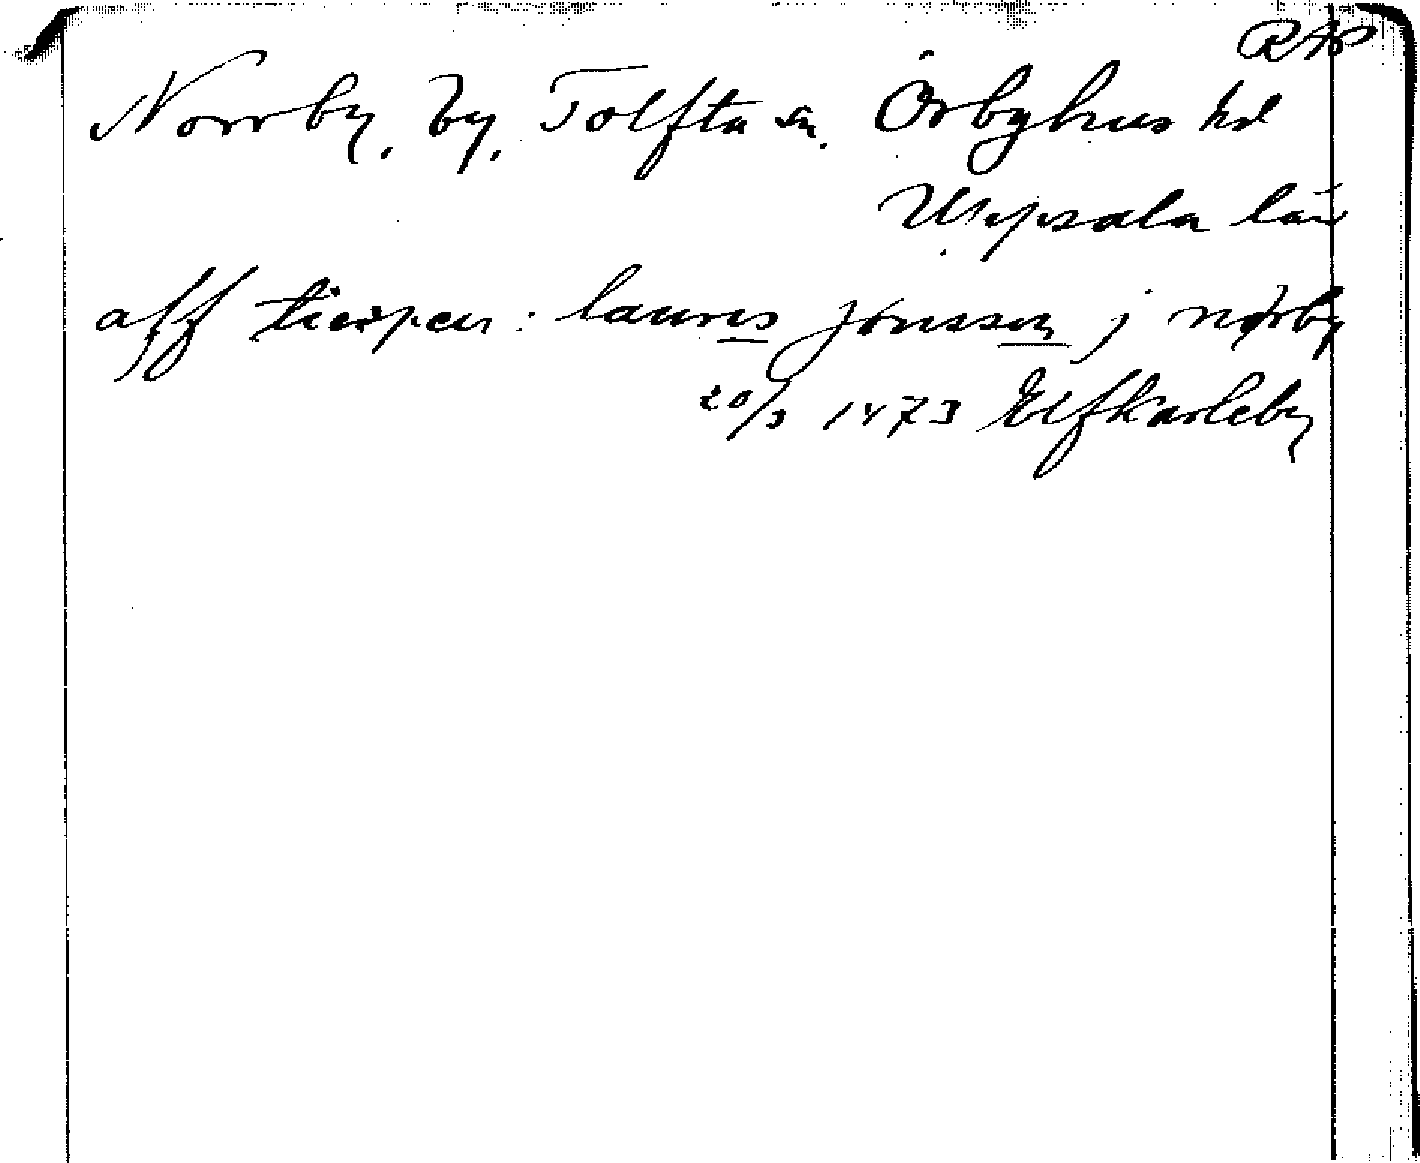 RAP
Norrby, by, Tolfta sn. Örbyhus hd
Uppsala län
aff tierpen: laurens jonsson j nørby
20/3 1473 Elfkarleby